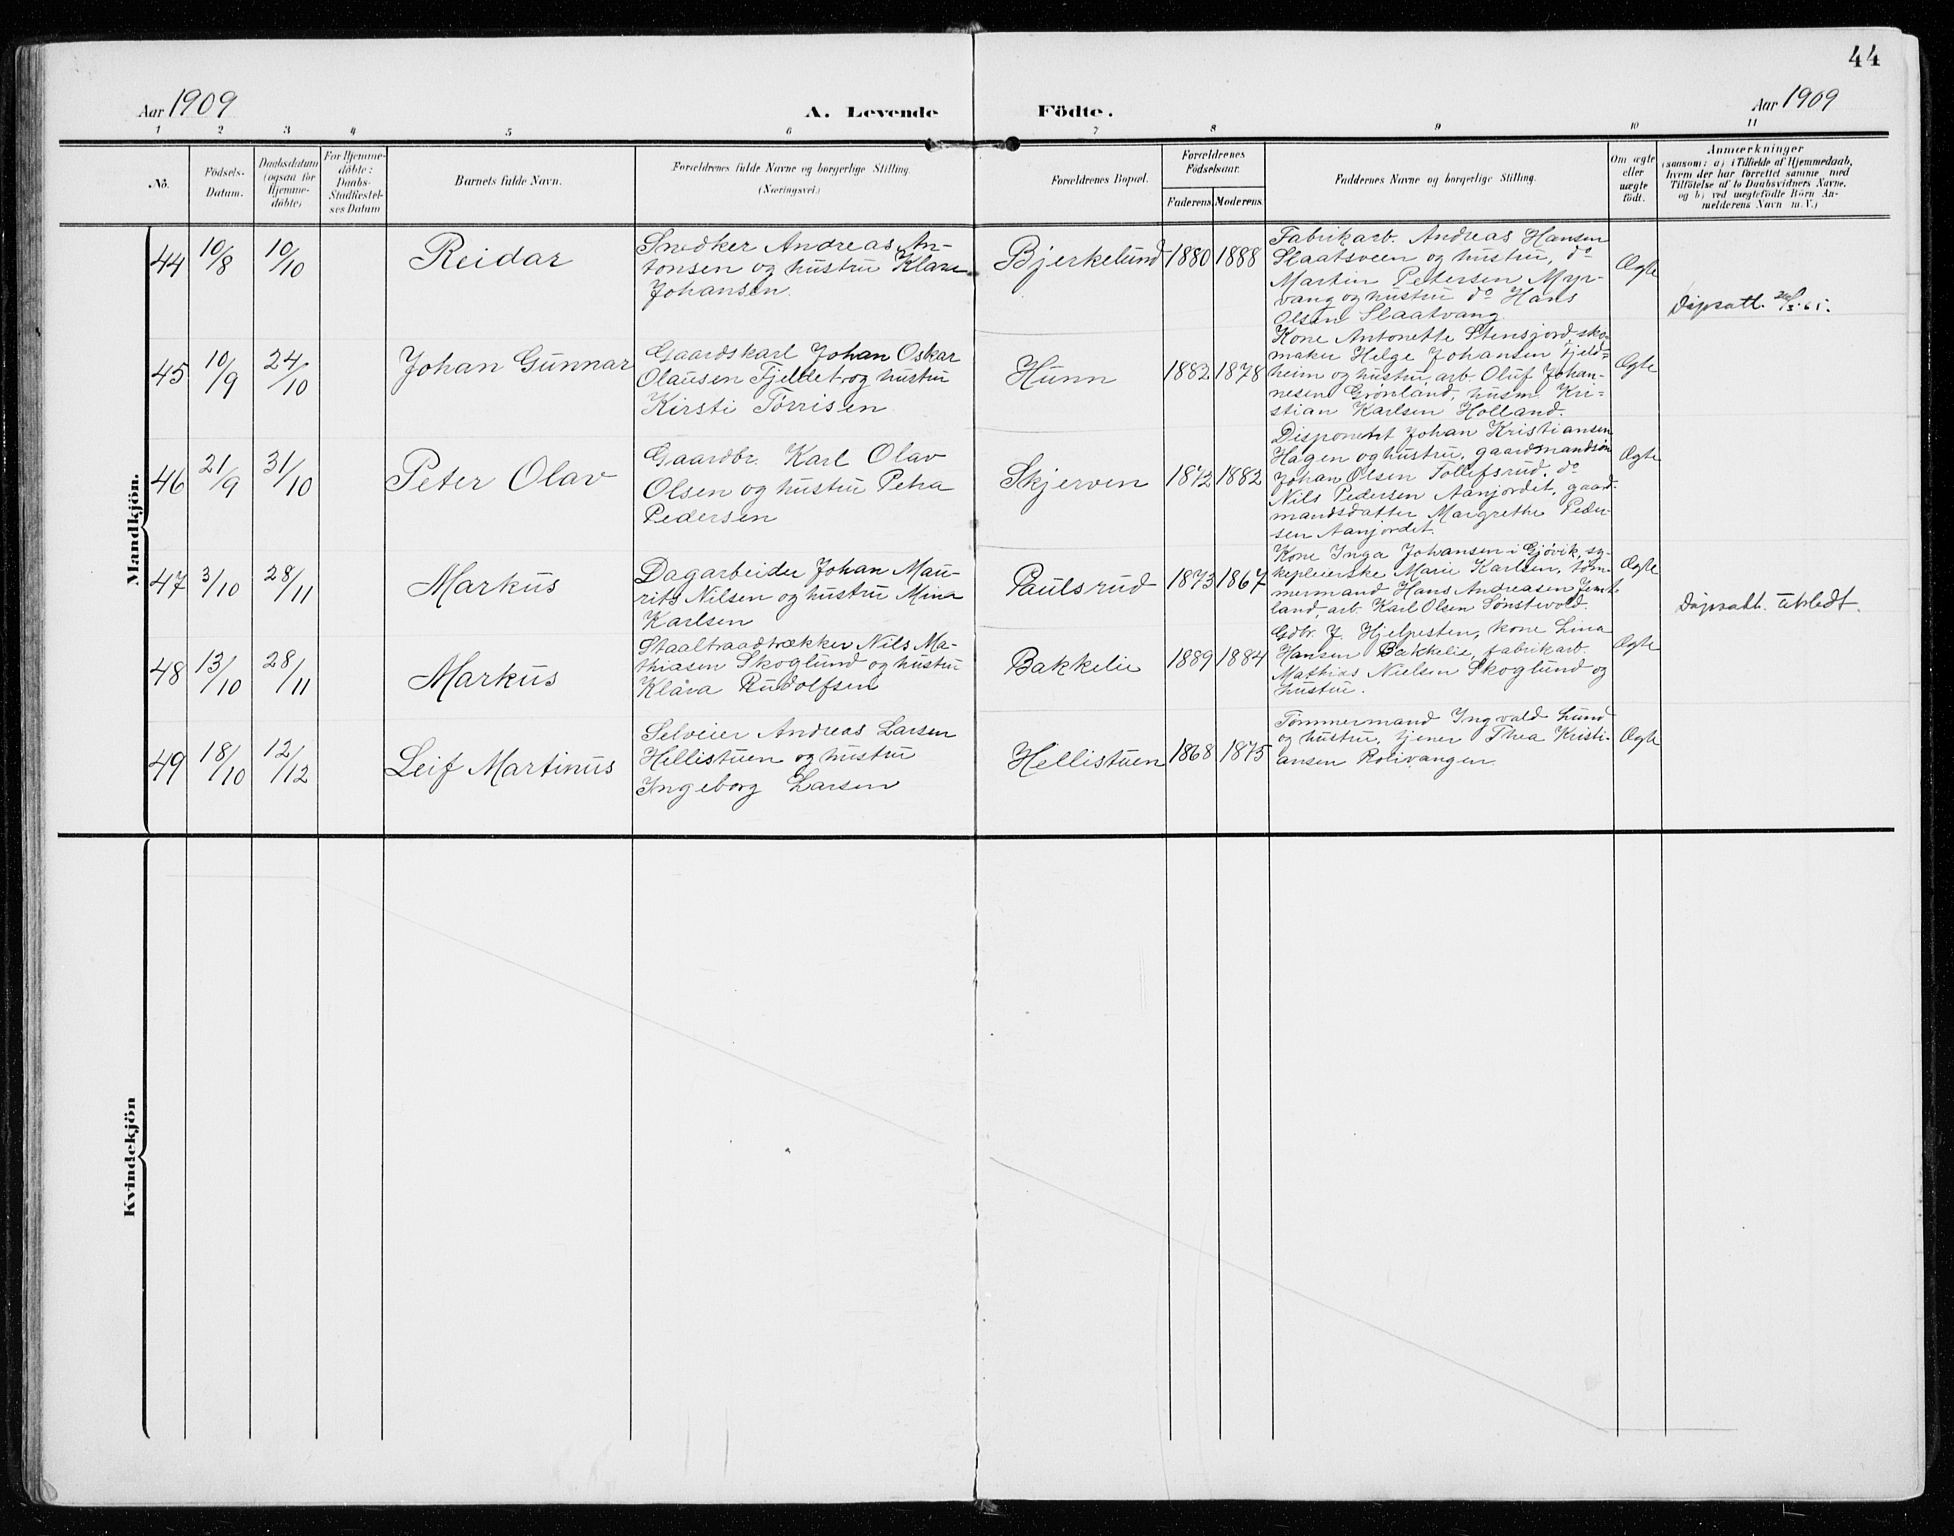 44
Aar 1909
A. Levende
Födte.
Aar 1909
1 2 3 4 5 6 7 8 9 10 11
No.
Födsels-
Datum.
Daabsdatum
(ogsaa for
Hjemme-
döbte)
For Hjemme-
döbte:
Daabs-
Stadfæstel-
ses Datum
Barnets fulde Navn.
Forældrenes fulde Navne og borgerlige Stilling.
(Næringsvei.)
Forældrenes Bopæl.
Forældrenes
Födselsaar.
Faderens
Moderens
Faddernes Navne og borgerlige Stilling.
Om ægte
eller
uægte
födt.
Anmærkninger
(saasom: a) i Tilfælde af Hjemmedaab,
hvem der har forrettet samme med
Tilföielse af to Daabsvidners Navne,
og b) ved uægtefödte Börn An-
melderens Navn m. V.)
Mandkjön.
44
10/8
10/10
Reidar
Snedker Andreas An-
tonsen og hustru Klara
Johansen.
Bjerkelund
1880
1888
Fabrikarb. Andreas Hansen
Slaatsveen og hustru, do
Martin Petersen Myr-
vang og hustru do Hans
Olsen Slaatvang.
Ægte
Dåpsatt.
45
10/9
24/10
Johan Gunnar
Gaardskarl Johan Oskar
Olausen Fjeldet og hustru
Kirsti Torrisen
Hunn
1882
1878
Kone Antonette Stensjord, sko-
maker Helge Johansen Fjeld-
heim og hustru, arb. Oluf Johan-
nesen Grønland, husm. Kri-
stian Karlsen Holland.
Ægte
46
21/9
31/10
Peter Olav
Gaardbr. Karl Olav
Olsen og hustru Petra
Pedersen
Skjerven
1872
1882
Disponent Johan Kristiansen
Hagen og hustru, gaardmandsøn
Johan Olsen Tollefsrud, do
Nils Pedersen Aanjordet, gaard-
mandsdatter Margrethe Peder-
sen Aanjordet.
Ægte
47
3/10
28/11
Markus
Dagarbeider Johan Mau-
rits Nilsen og hustru Mina
Karlsen
Paulsrud
1873
1867
Kone Inga Johansen i Gjøvik, sy-
kepleierske Marie Karlsen, tøm-
mermand Hans Andreasen Jemt-
land, arb. Karl Olsen Sønstevold.
Ægte
Dåpsatt. utstedt.
48
13/10
28/11
Markus
Staaltraadtrækker Nils Ma-
thiasen Skoglund og hustru
Klara Rudolfsen
Bakkelie
1889
1884
Gdbr. J. Hjelpesten, kone Lina
Hansen Bakkelie, fabrikarb.
Mathias Nielsen Skoglund og
hustru.
Ægte
49
18/10
12/12
Leif Martinus
Selveier Andreas Larsen
Hellistuen og hustru
Ingeborg Larsen
Hellistuen
1868
1875
Tømmermand Ingvald Lund
og hustru, tjener Thea Kristi-
ansen Rolivangen
Ægte
Kvindekjön